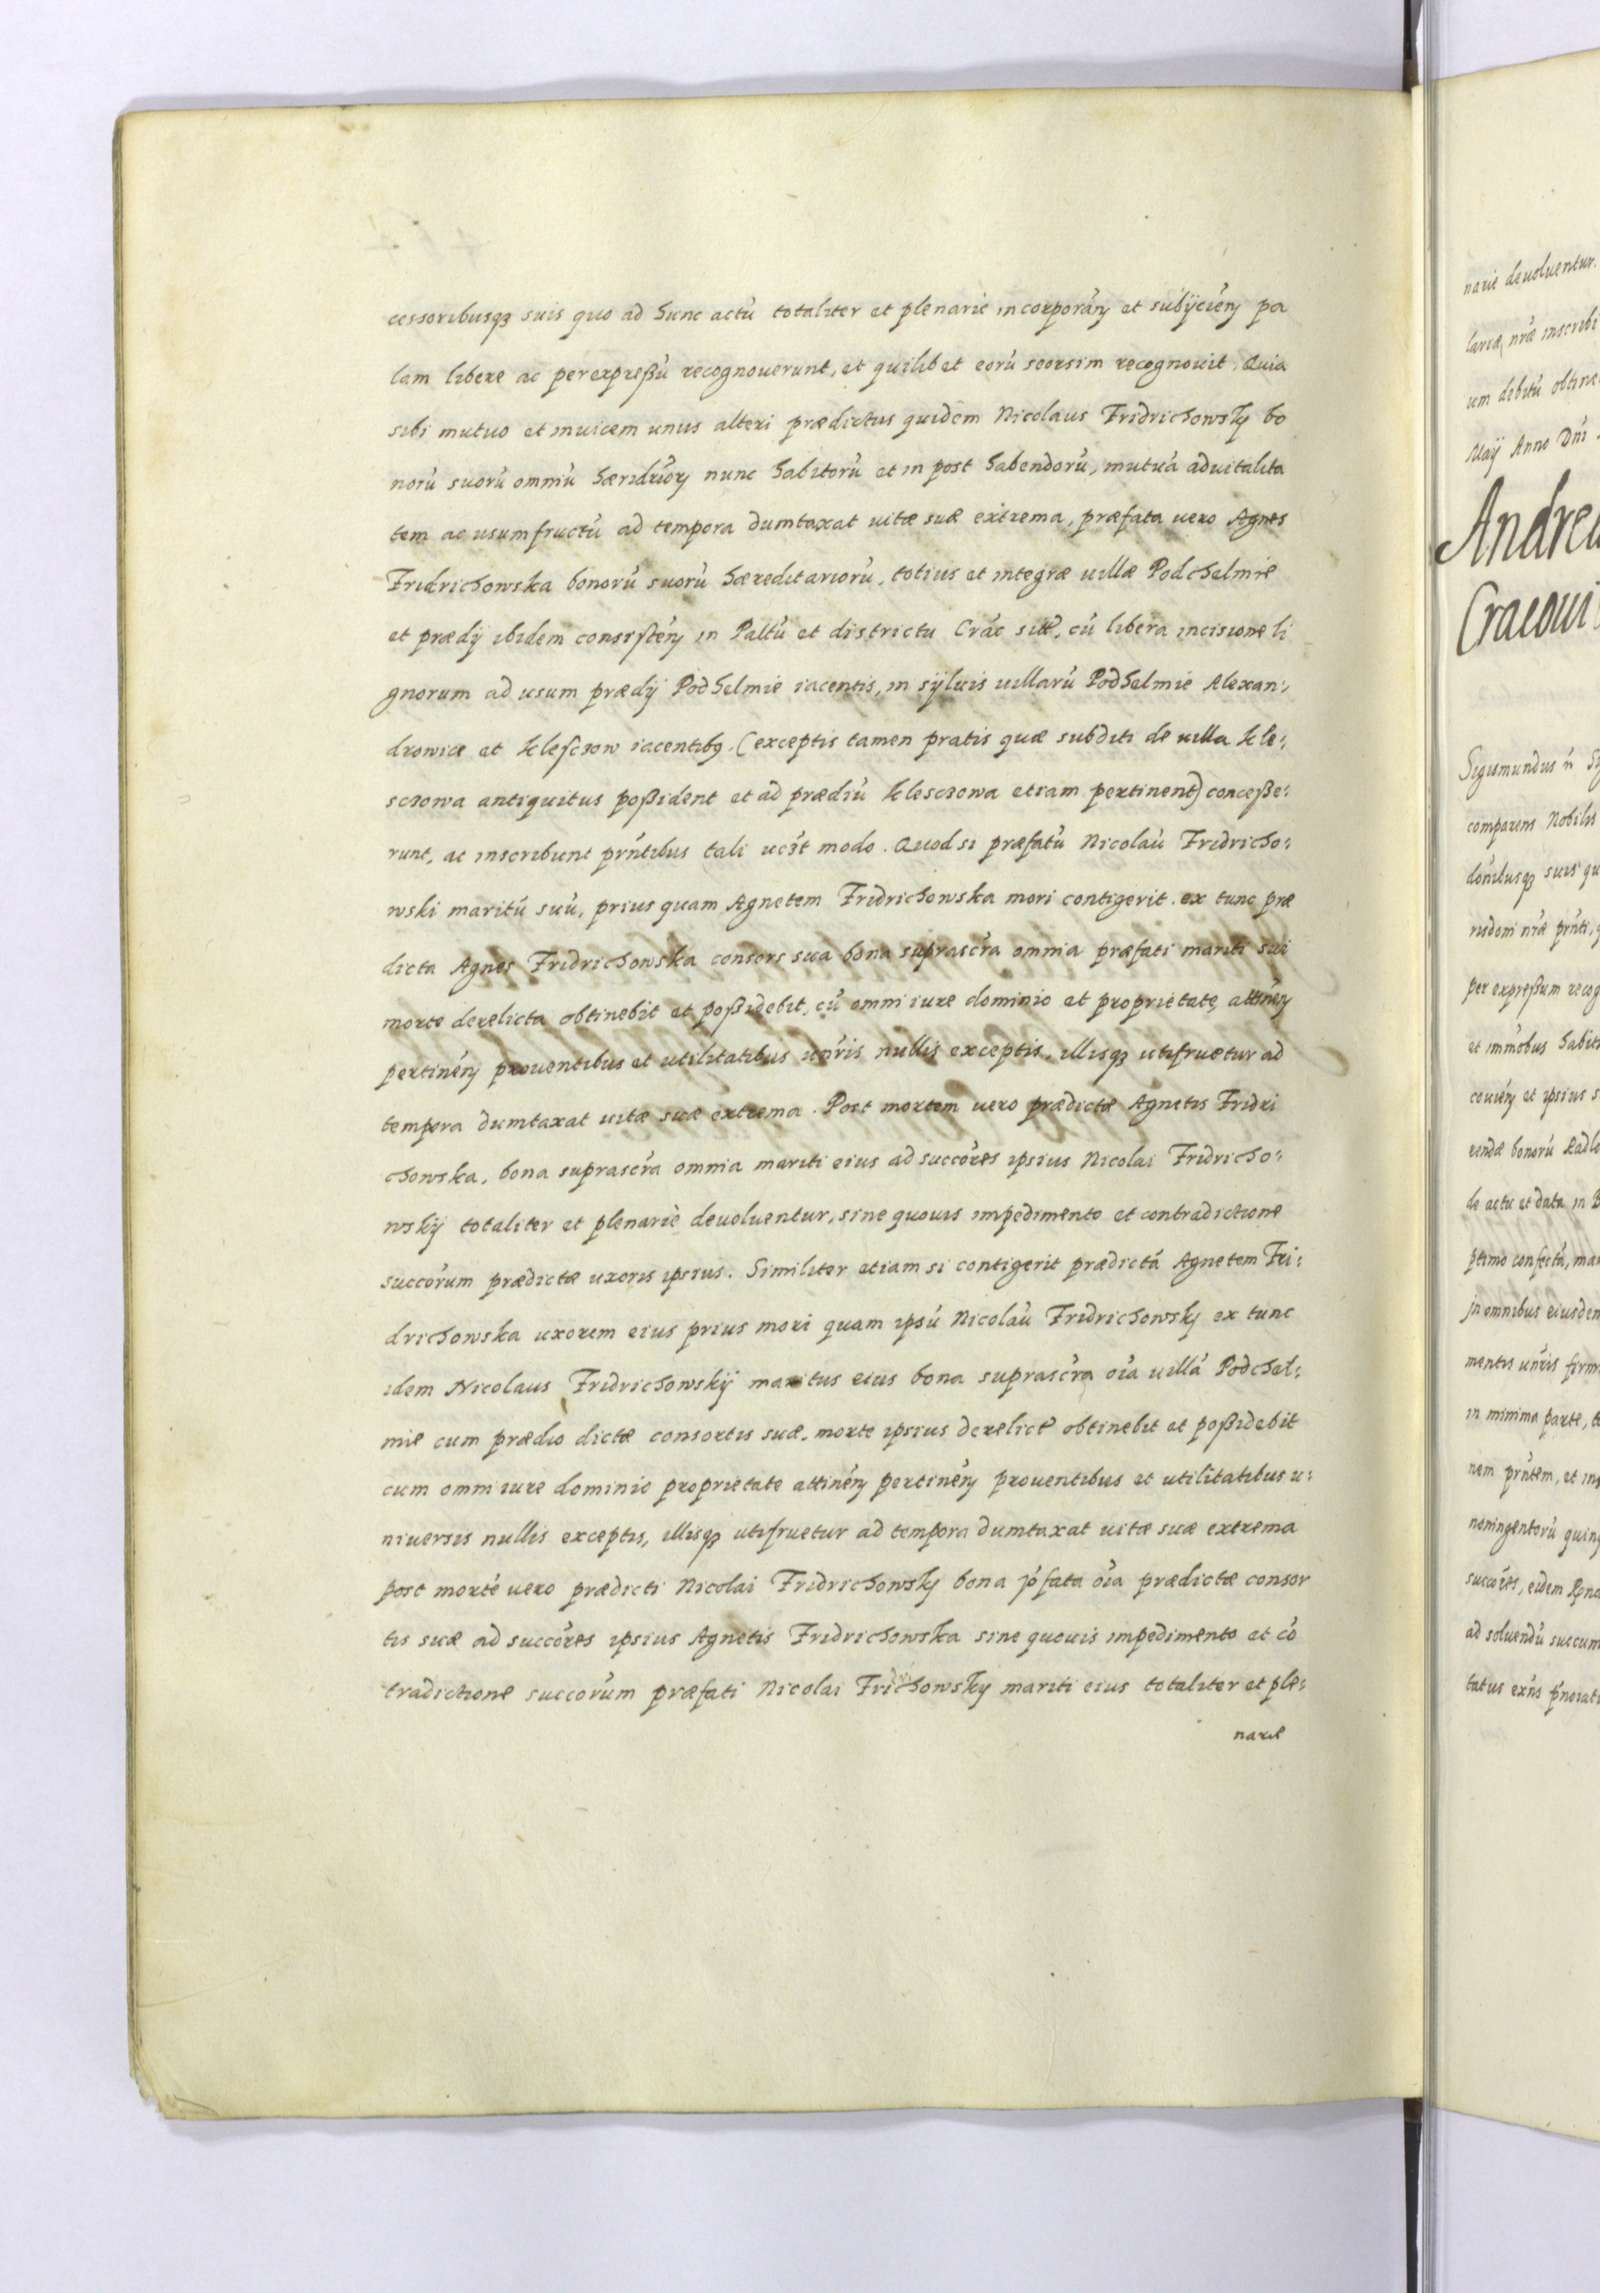 cessoribusqz suis quo ad hunc actū totaliter et plenarie incorporāń et subÿciēń pa
lam libere ac per expreßū recognoverunt, et quilibet eorū seorsim recognovit. Quia
sibi mutuo et invicem unus alteri prædictus quidem Nicolaus Fridrichowskÿ bo
norū suorū omniū hæridriorū nunc habitorū et in post habendorū, mutuā advitalita
tem ac usumfructū ad tempora dumtaxat vitæ suæ extrema, præfata vero Agnes
Fridrichowska bonorū suorū hæreditariorū, totius et integræ villæ Podchelmie
et prædÿ ibidem consisteń in Paltū et districtu Crac sitæ, cū libera incisione li
gnorum ad usum prædÿ Podhelmie iacentis, in sÿluis villarū Podhelmie Alexan:,
drowice et Klesczow iacentibg. (exceptis tamen pratis quæ subditi de villa Kle:,
sczowa antiquitus poßident et ad prædiū Klesczowa etiam pertinent) conceße:,
runt, ac inscribunt prńtibus tali vczt modo. Quod si præfatū Nicolaū Fridricho:,
wski maritū suū, prius quam Agnetem Fridrichowska mori contigerit. ex tunc præ
dicta Agnes Fridrichowska consors sua bona suprascra omnia præfati mariti sui
morte derelicta obtinebit et poßidebit, cū omni iure dominio et proprietate, attineń
pertineń proventibus et utilitatibus unris nullis exceptis, illisqz utifruetur ad
tempora dumtaxat vitæ suæ extrema. Post mortem vero prædictæ Agnetis Fridri
chowska, bona suprascra omnia mariti eius ad succores ipsius Nicolai Fridricho:,
wskÿ totaliter et plenariè devoluentur, sine quovis impedimento et contradictione
succorum prædictæ uxoris ipsius. Similiter etiam si contigerit prædictā Agnetem Fri:,
drichowska uxorem eius prius mori quam ipsū Nicolaū Fridrichowskÿ ex tunc
idem Nicolaus Fridrichowskÿ maritus eius bona suprascra oia villā Podchel:,
mie cum prædio dictæ consortis suæ, morte ipsius derelict obtinebit et poßidebit
cum omni iure dominio proprietate attineń pertineń proventibus et utilitatibus u:,
niversis nullis exceptis, illisqz utifruetur ad tempora dumtaxat vitæ suæ extrema
post mortē vero prædicti Nicolai Fridrichowskÿ bona pfata oia prædictæ consor
tis suæ ad succores ipsius Agnetis Fridrichowska sine quovis impedimento et cō
tradictione succorum præfati Nicolai Fridrichowskÿ mariti eius totaliter et ple:,
narie
narie devoluentur.
lariæ nræ inscribi
um debitū obtine
Maÿ Anno Dni
Andrea
Cracovi
Sigismundus
comparens Nobilis
donibusqz suis qu
per expreßum recog
et immobus habit
et ipsius s
rendæ bonorū Radlo
de actu et data in B
ptimo confectā, man
in omnibus eiusdem
mentis unris firm
in minima parte, t
nem prntem, et ins
noningentorū quing
succores, eidem
ad soluendū succum